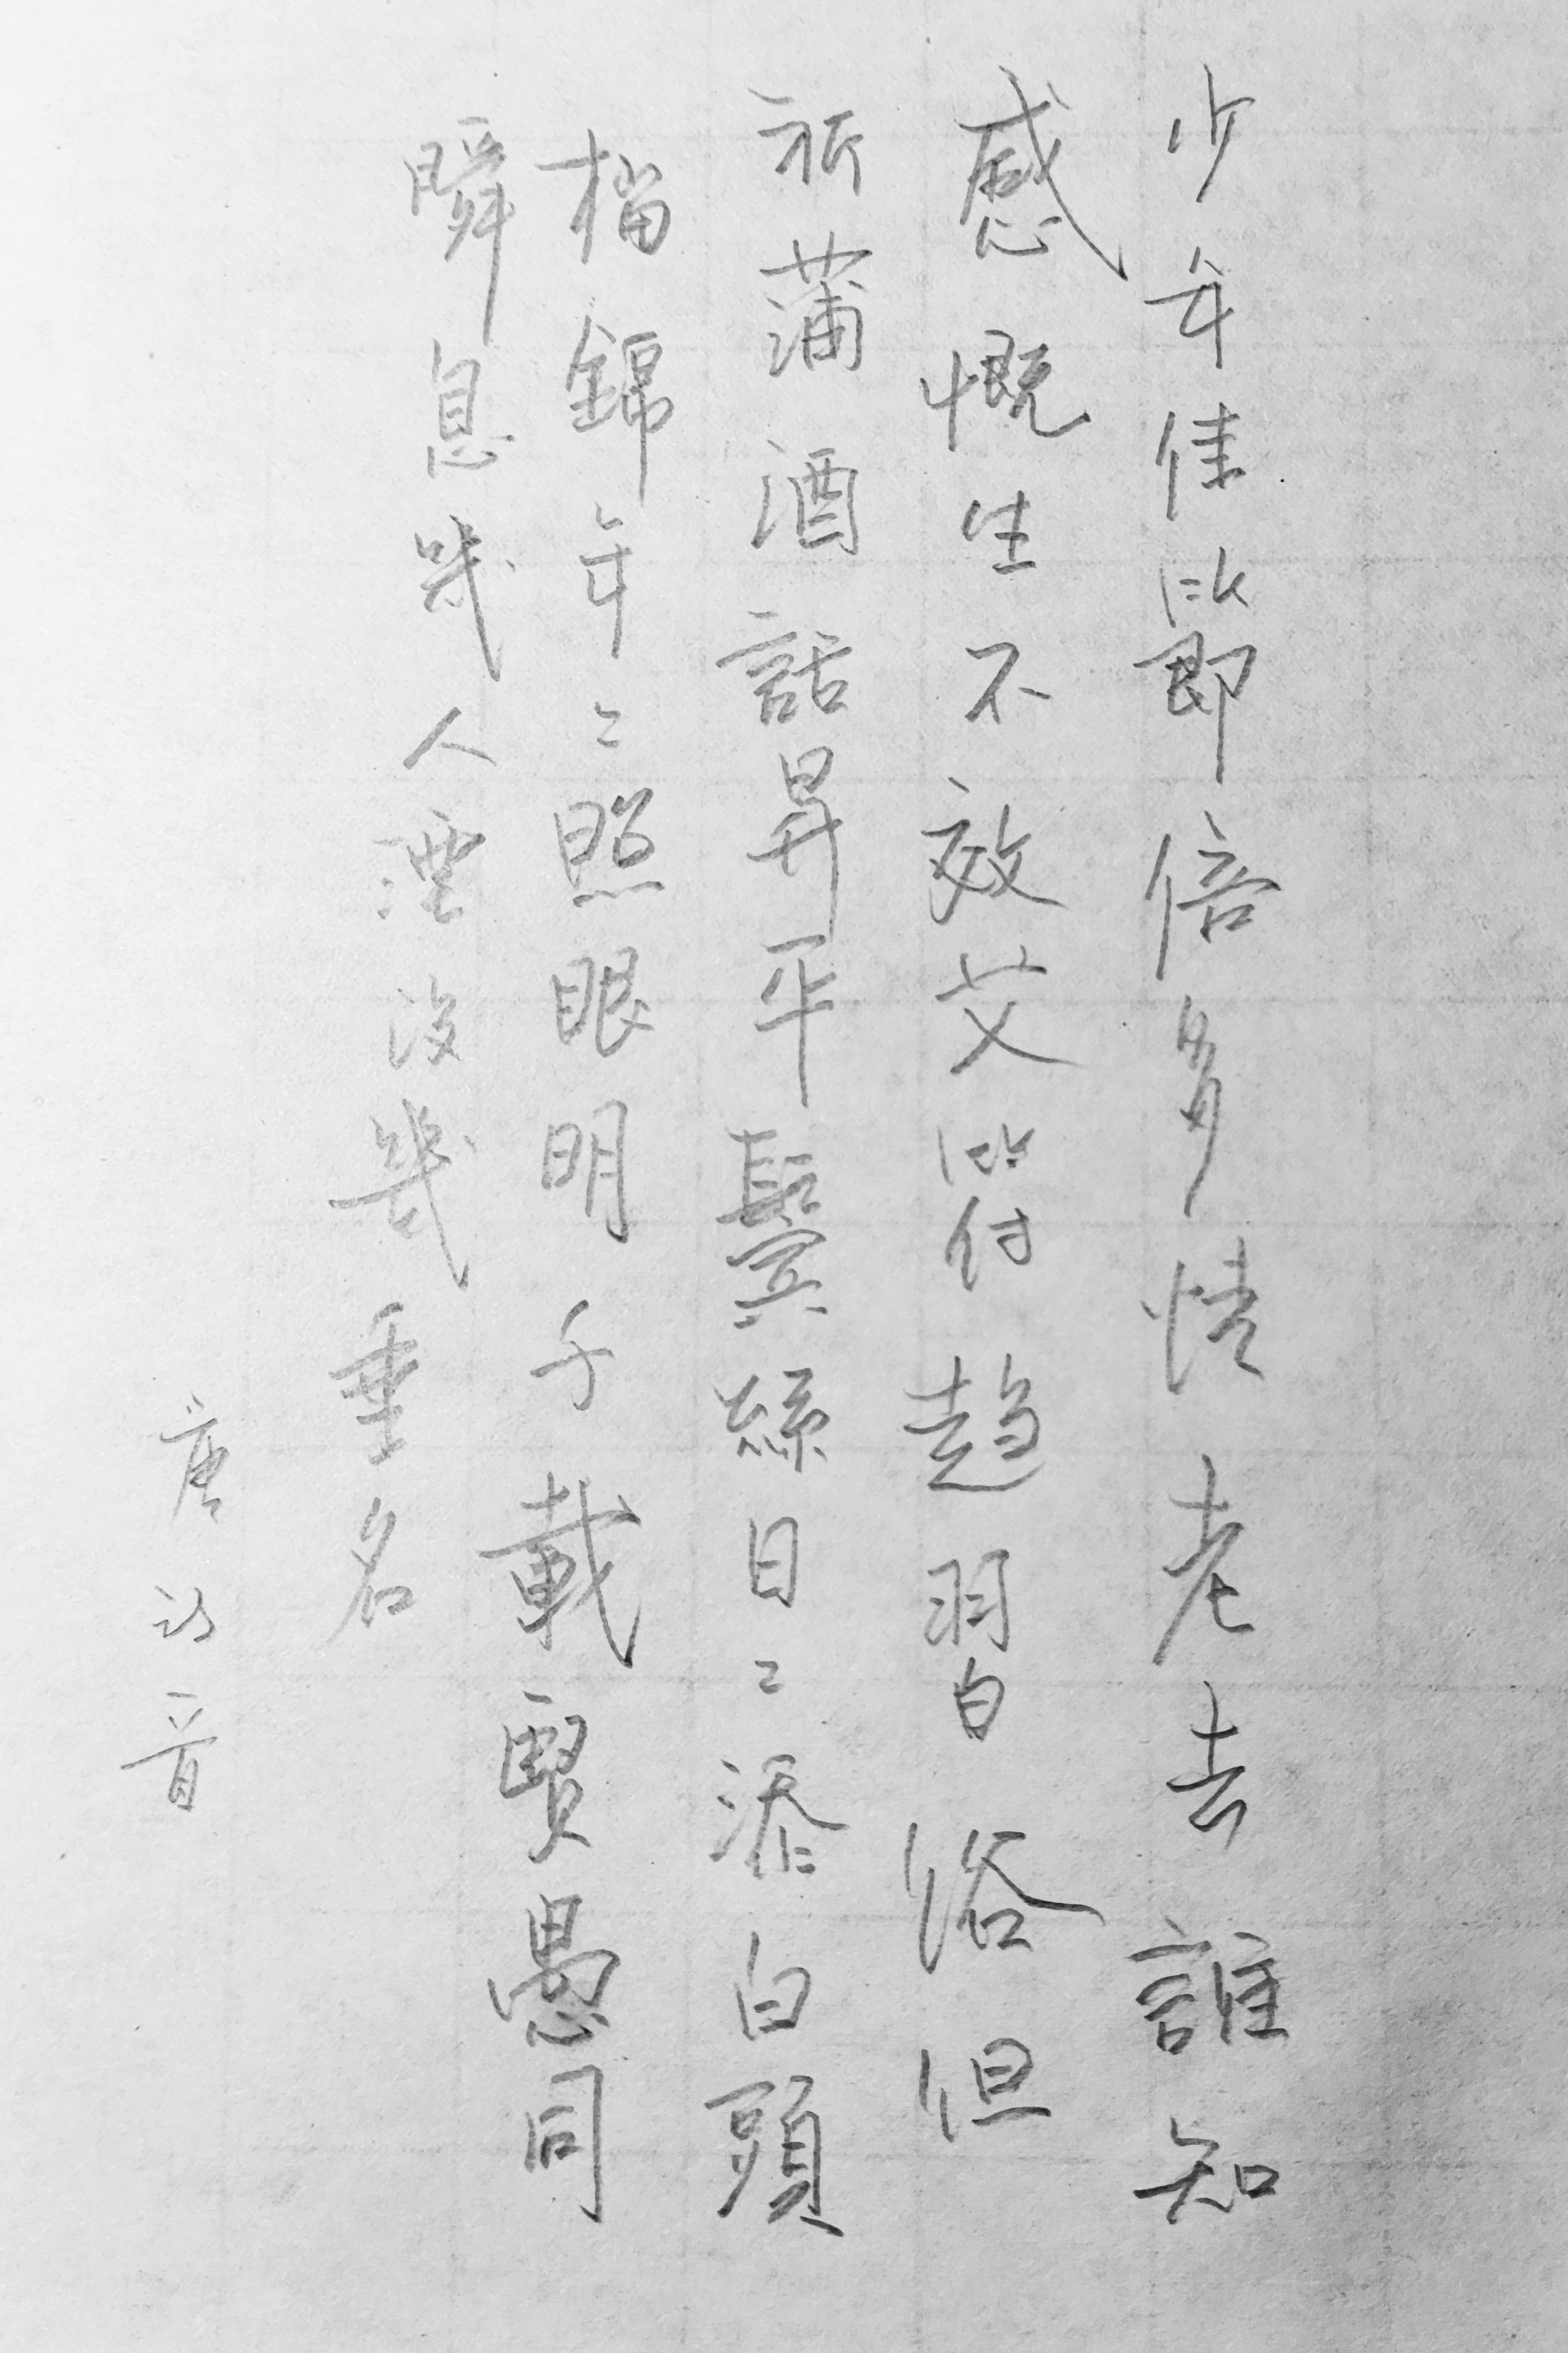 少年佳節倍多情老去誰知
感慨生不效艾符趨習俗但
祈蒲酒話昇平鬢絲日〻添白頭
榴錦年〻照眼明千載賢愚同
瞬息幾人湮沒幾垂名
唐